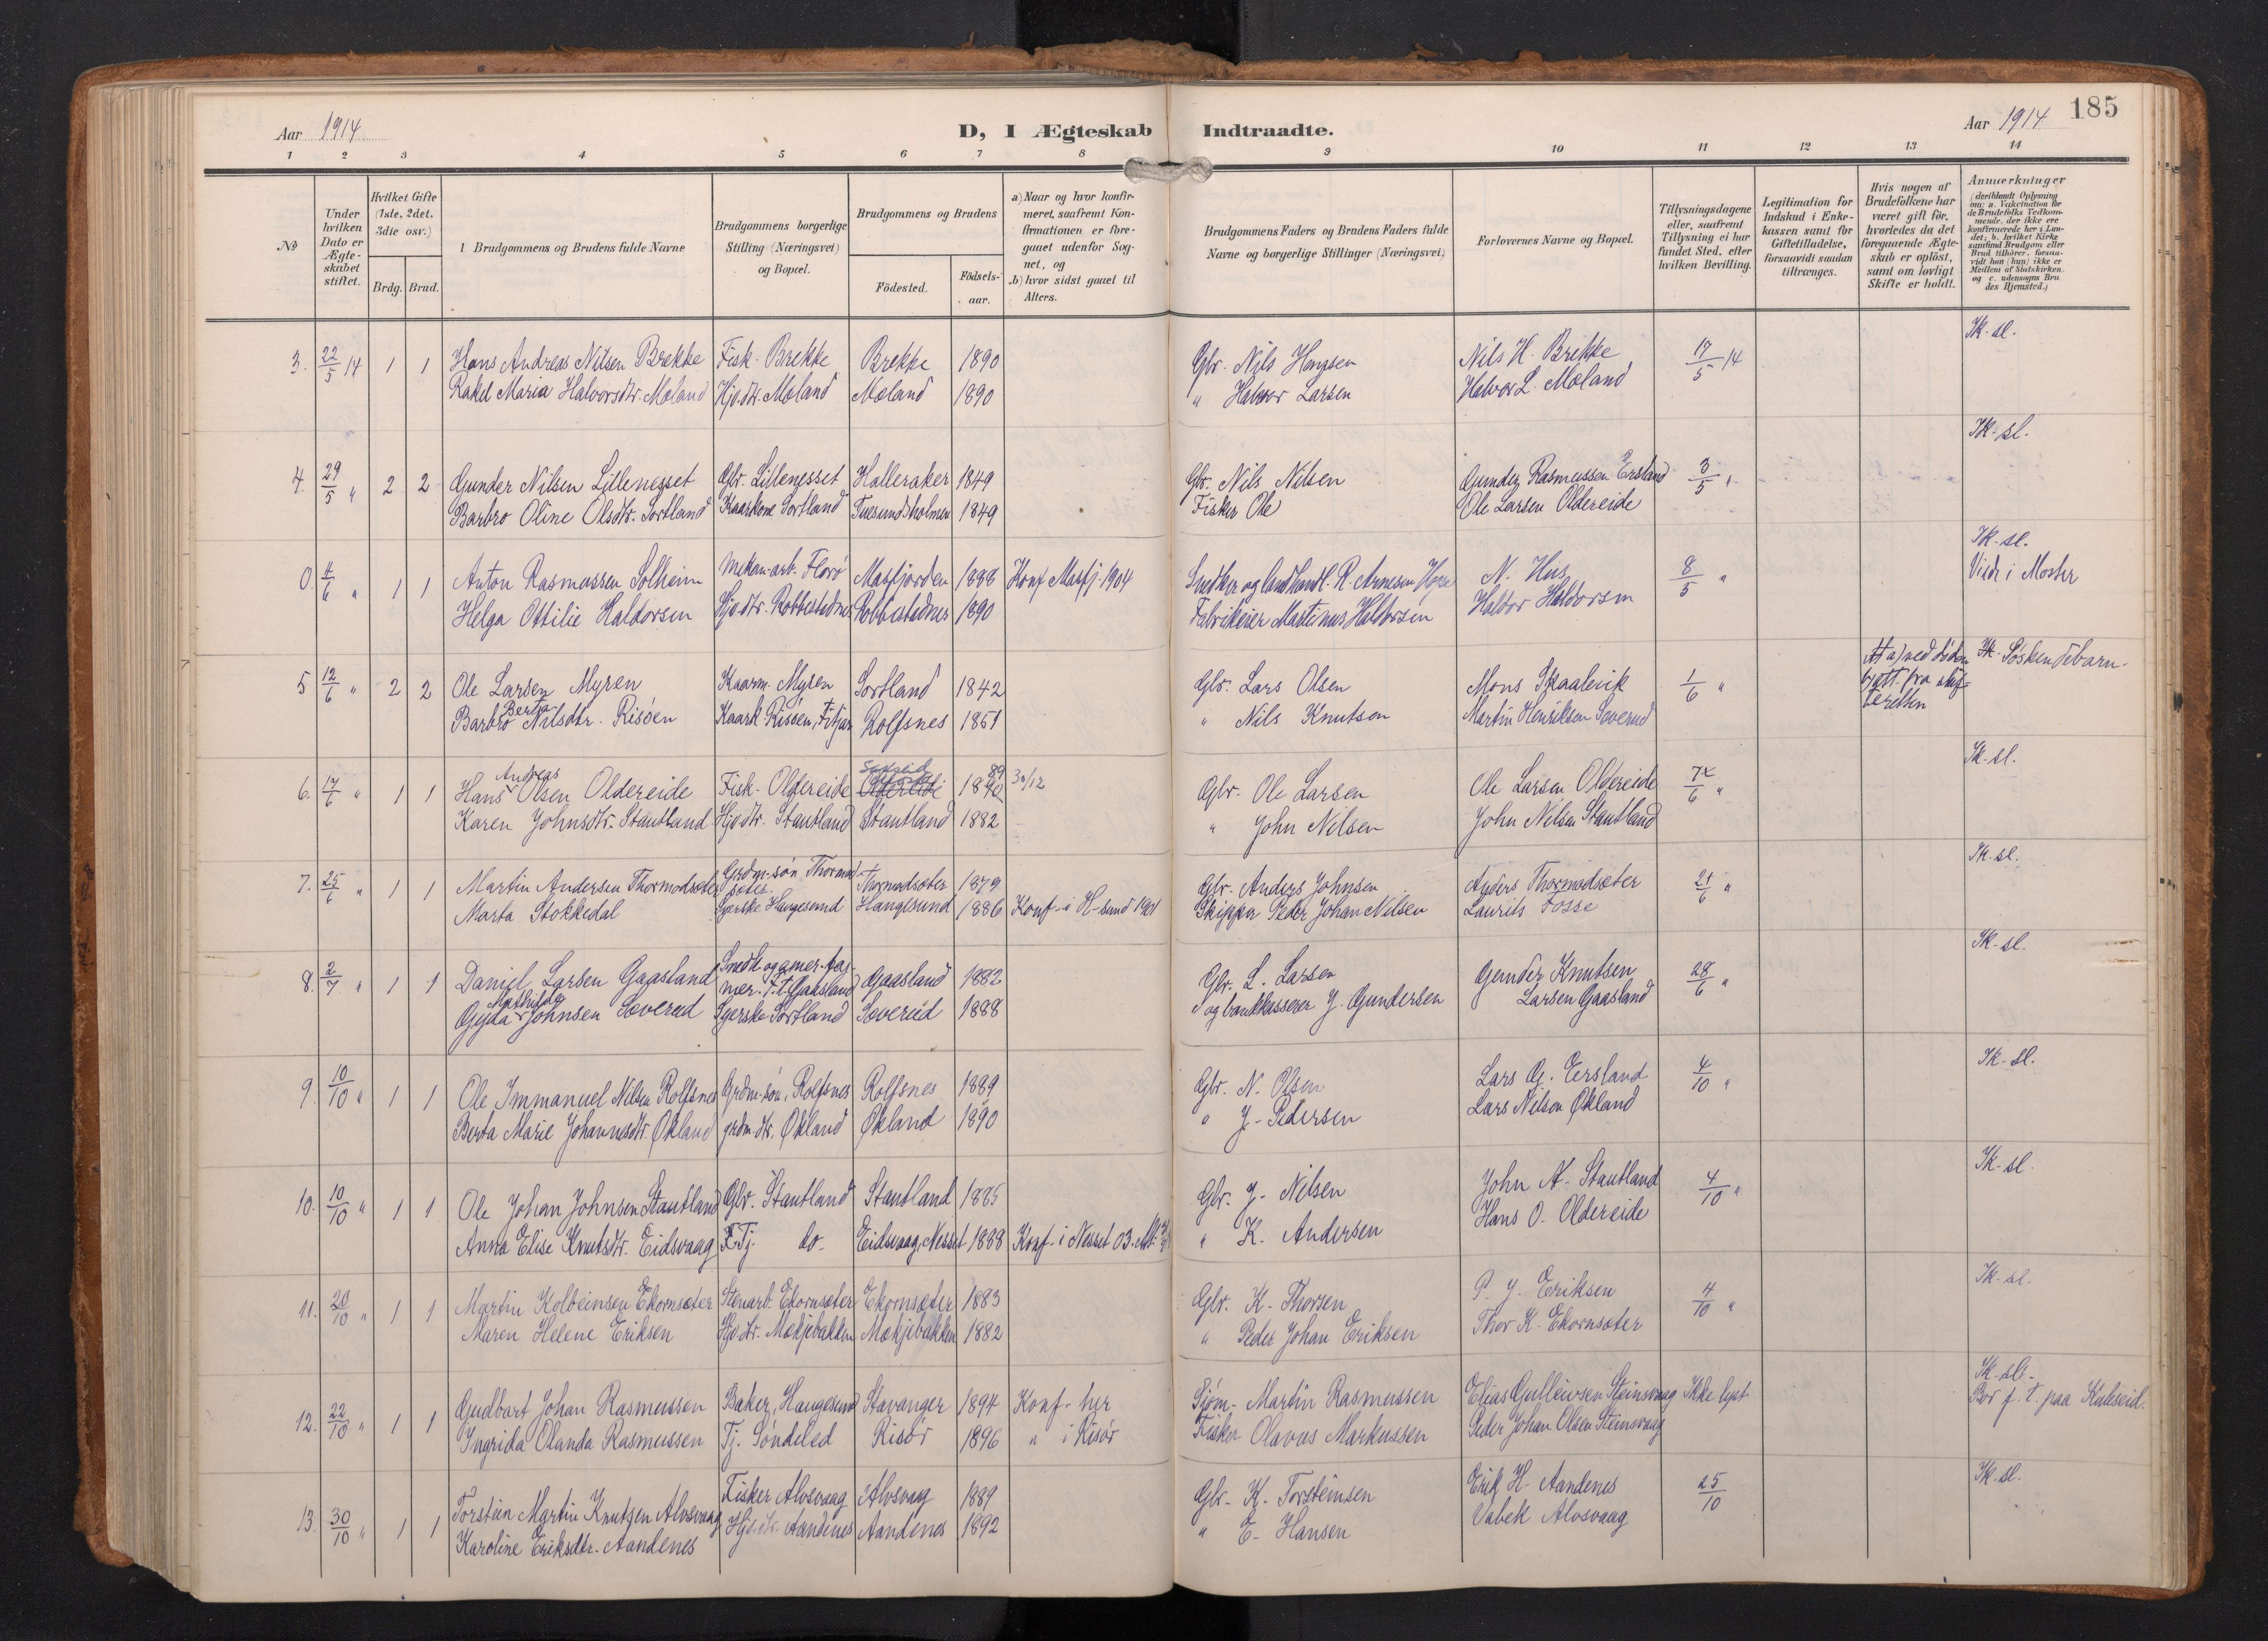 Aar 1914
D, I Ægteskab Indtraadte.
Aar 1914
185
1 2 3 4 5 6 7 8 9 10 11 12 13 14
No
Under hvilken Dato er Ægteskabet stiftet.
Hvilket Gifte (1ste, 2det, 3die osv.)
Brdg. Brud.
1 Brudgommens og Brudens fulde Navne
Brudgommens borgerlige Stilling (Næringsvei) og Bopæl.
Brudgommens og Brudens
Födested.
Födsels-aar.
a) Naar og hvor konfirmeret, saafremt Konfirmationen er foregaaet udenfor Sognet, og
b) hvor sidst gaaet til Alters.
Brudgommens Faders og Brudens Faders fulde Navne og borgerlige Stillinger (Næringsvei)
Forlovernes Navne og Bopæl.
Tillysningsdagene eller, saafremt Tillysning ei har fundet Sted, efter hvilken Bevilling.
Legitimation for Indskud i Enkekassen samt for Giftetilladelse, forsaavidt saadan tiltrænges.
Hvis nogen af Brudefolkene har været gift för, hvorledes da det foregaaende Ægteskab er oplöst, samt om lovligt Skifte er holdt.
Anmerkninger
(deriblandt Oplysning om: a. Vakcination for de Brudefolks Vedkommende, der ikke ere konfirmerede her i Landet; b. hvilket Kirkesamfund Brudgom eller Brud tilhörer, forsaavidt han (hun) ikke er Medlem af Statskirken. og c. udensogns Brudes Hjemsted.)
3. 22/5 14 1 1 Hans Andreas Nilsen Brekke Fisk. Brekke Brekke 1890 Gbr. Nils Hansen Nils H. Brekke 17/5 14 Ik. sl.
Rakel Maria Halvorsdtr. Mæland Hjv.dtr. Mæland Mæland 1890 " Halvor Larsen Halvor L. Mæland
4. 29/5 " 2 2 Gunder Nilsen Lillenesset Gbr. Lillenesset Halleraker 1849 Gbr. Nils Nilsen Gunder Rasmussen Ersland 3/5 " Ik. sl.
Barbro Oline Olsdtr. Sortland Kaarkone Sortland Tuesundsholmen 1849 Fisker Ole Ole Larsen Oldereide
0. 4/6 " 1 1 Anton Rasmussen Solheim Mekan. arb. Florö Masfjorden 1888 Konf Masfj. 1904 Snedker og landhandl. R. Arnesen N. Hus 8/5 " Ik. sl.
Helga Ottilie Haldorsen Hjv.dtr. Robbestadnes Robbestadnes 1890 Fabrikeier Martinus Haldorsen Haldor Haldorsen Viede i Moster
5 12/6 " 2 2 Ole Larsen Myren Kaarm. Myren Sortland 1842 Gbr. Lars Olsen Mons Skaalevik 1/6 " Ik. Söskendebarn.
Barbro Berta Nilsdtr. Risöen Kaark. Risöen, Fitjar Rolfsnes 1851 " Nils Knutson Martin Henriksen Sæverud
6. 17/6 " 1 1 Hans Andreas Olsen Oldereide Fisk. Oldereide 1890 89 30/12 Gbr. Ole Larsen Ole Larsen Oldereide 7/6 " Ik. sl.
Karen Johnsdtr. Stautland Hjv.dtr. Stautland Stautland 1882 " John Nilsen John Nilsen Stautland
7. 25/6 " 1 1 Martin Andersen Thormodsæter Grdm.søn Thormodsæter Thormodsæter 1879 Gbr. Anders Johnsen Anders Thormodsæter 21/6 " Ik. sl.
Marta Stokkedal Syerske Haugesund Haugesund 1886 Konf. i H-sund 1901 Skipper Peder Johan Nilsen Laurits Fosse
8. 2/7 " 1 1 Daniel Larsen Gaasland Snedk og amer. farmer. f.t. Gaasland Gaasland 1882 Gbr. L. Larsen Gunder Knutsen 28/6 " Ik. sl.
Gyda Mathilde Johnsen Sæverud Syerske Sortland Sæverud 1888 " og bankkasserer J. Gundersen Larsen Gaasland
9. 10/10 " 1 1 Ole Immanuel Nilsen Rolfsnes Grdm. søn, Rolfsnes Rolfsnes 1889 Gbr. N. Olsen Lars G. Eersland 4/10 " Ik. sl.
Berta Marie Johannesdtr. Økland grdm. dtr. Økland Økland 1890 " J. Pedersen Lars Nilsen Økland
10. 10/10 " 1 1 Ole Johan Johnsen Stautland Gbr. Stautland Stautland 1885 Gbr. J. Nilsen John N. Stautland 4/10 " Ik. sl.
Anna Elise Knutsdtr. Eidsvaag Tj. do. Eidsvaag, Nesset 1888 Konf. i Nesset 03. " K. Andersen Hans O. Oldereide
11. 20/10 " 1 1 Martin Kolbeinsen Ekornsæter Stenarb. Ekornsæter Ekornsæter 1883 Gbr. K. Thorsen P. J. Eriksen 4/10 " Ik. sl.
Maren Helene Eriksen Hjv.dtr. Mækjebakken Mækjebakken 1882 " Peder Johan Eriksen Thor K. Ekornsæter
12. 22/10 " 1 1 Gudbart Johan Rasmussen Baker, Haugesund Stavanger 1894 Konf. her Sjøm. Martin Rasmussen Elias Gulleivsen Steinsvaag Ikke lyst Ik. sl.
Ingrida Olanda Rasmussen Tj. Søndeled Risör 1896 " i Risör Fisker Olavus Markussen Peder Johan Olsen Steinsvaag Bor f. t. paa Kuleseid.
13. 30/10 " 1 1 Torstein Martin Knutsen Alvsvaag Fisker Alvsvaag Alvsvaag 1889 Gbr. K. Torsteinsen Erik H. Aandenes 25/10 Ik. sl.
Karoline Eriksdtr. Aandenes Hjv.dtr. Aandenes Aandenes 1892 " E. Hansen Vabek Alvsvaag